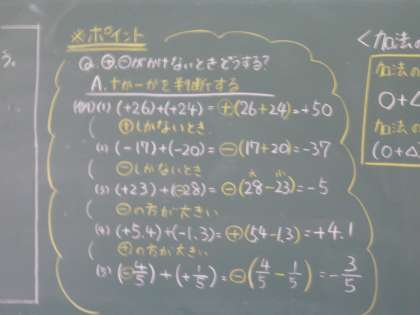 ※ポイント
Q. ⊕,⊖がかけないときどうする?
A. ⊕かーかを判断する
(例) (1) (+26)+(+24)=⊕(26+24)=+50
⊕しかないとき
(2) (-17)+(-20)=⊖(17+20)=-37
⊖しかないとき
大 小
(3) (+23)+(-28)=⊖(28-23)=-5
⊖の方が大きい
(4) (+5.4)+(-1.3)=⊕(5.4-1.3)=+4.1
⊕の方が大きい
(5) (-4/5)+(+1/5)=⊖(4/5-1/5)=-3/5
う。
<加法の
加法の
○+△
加法の
(○+△